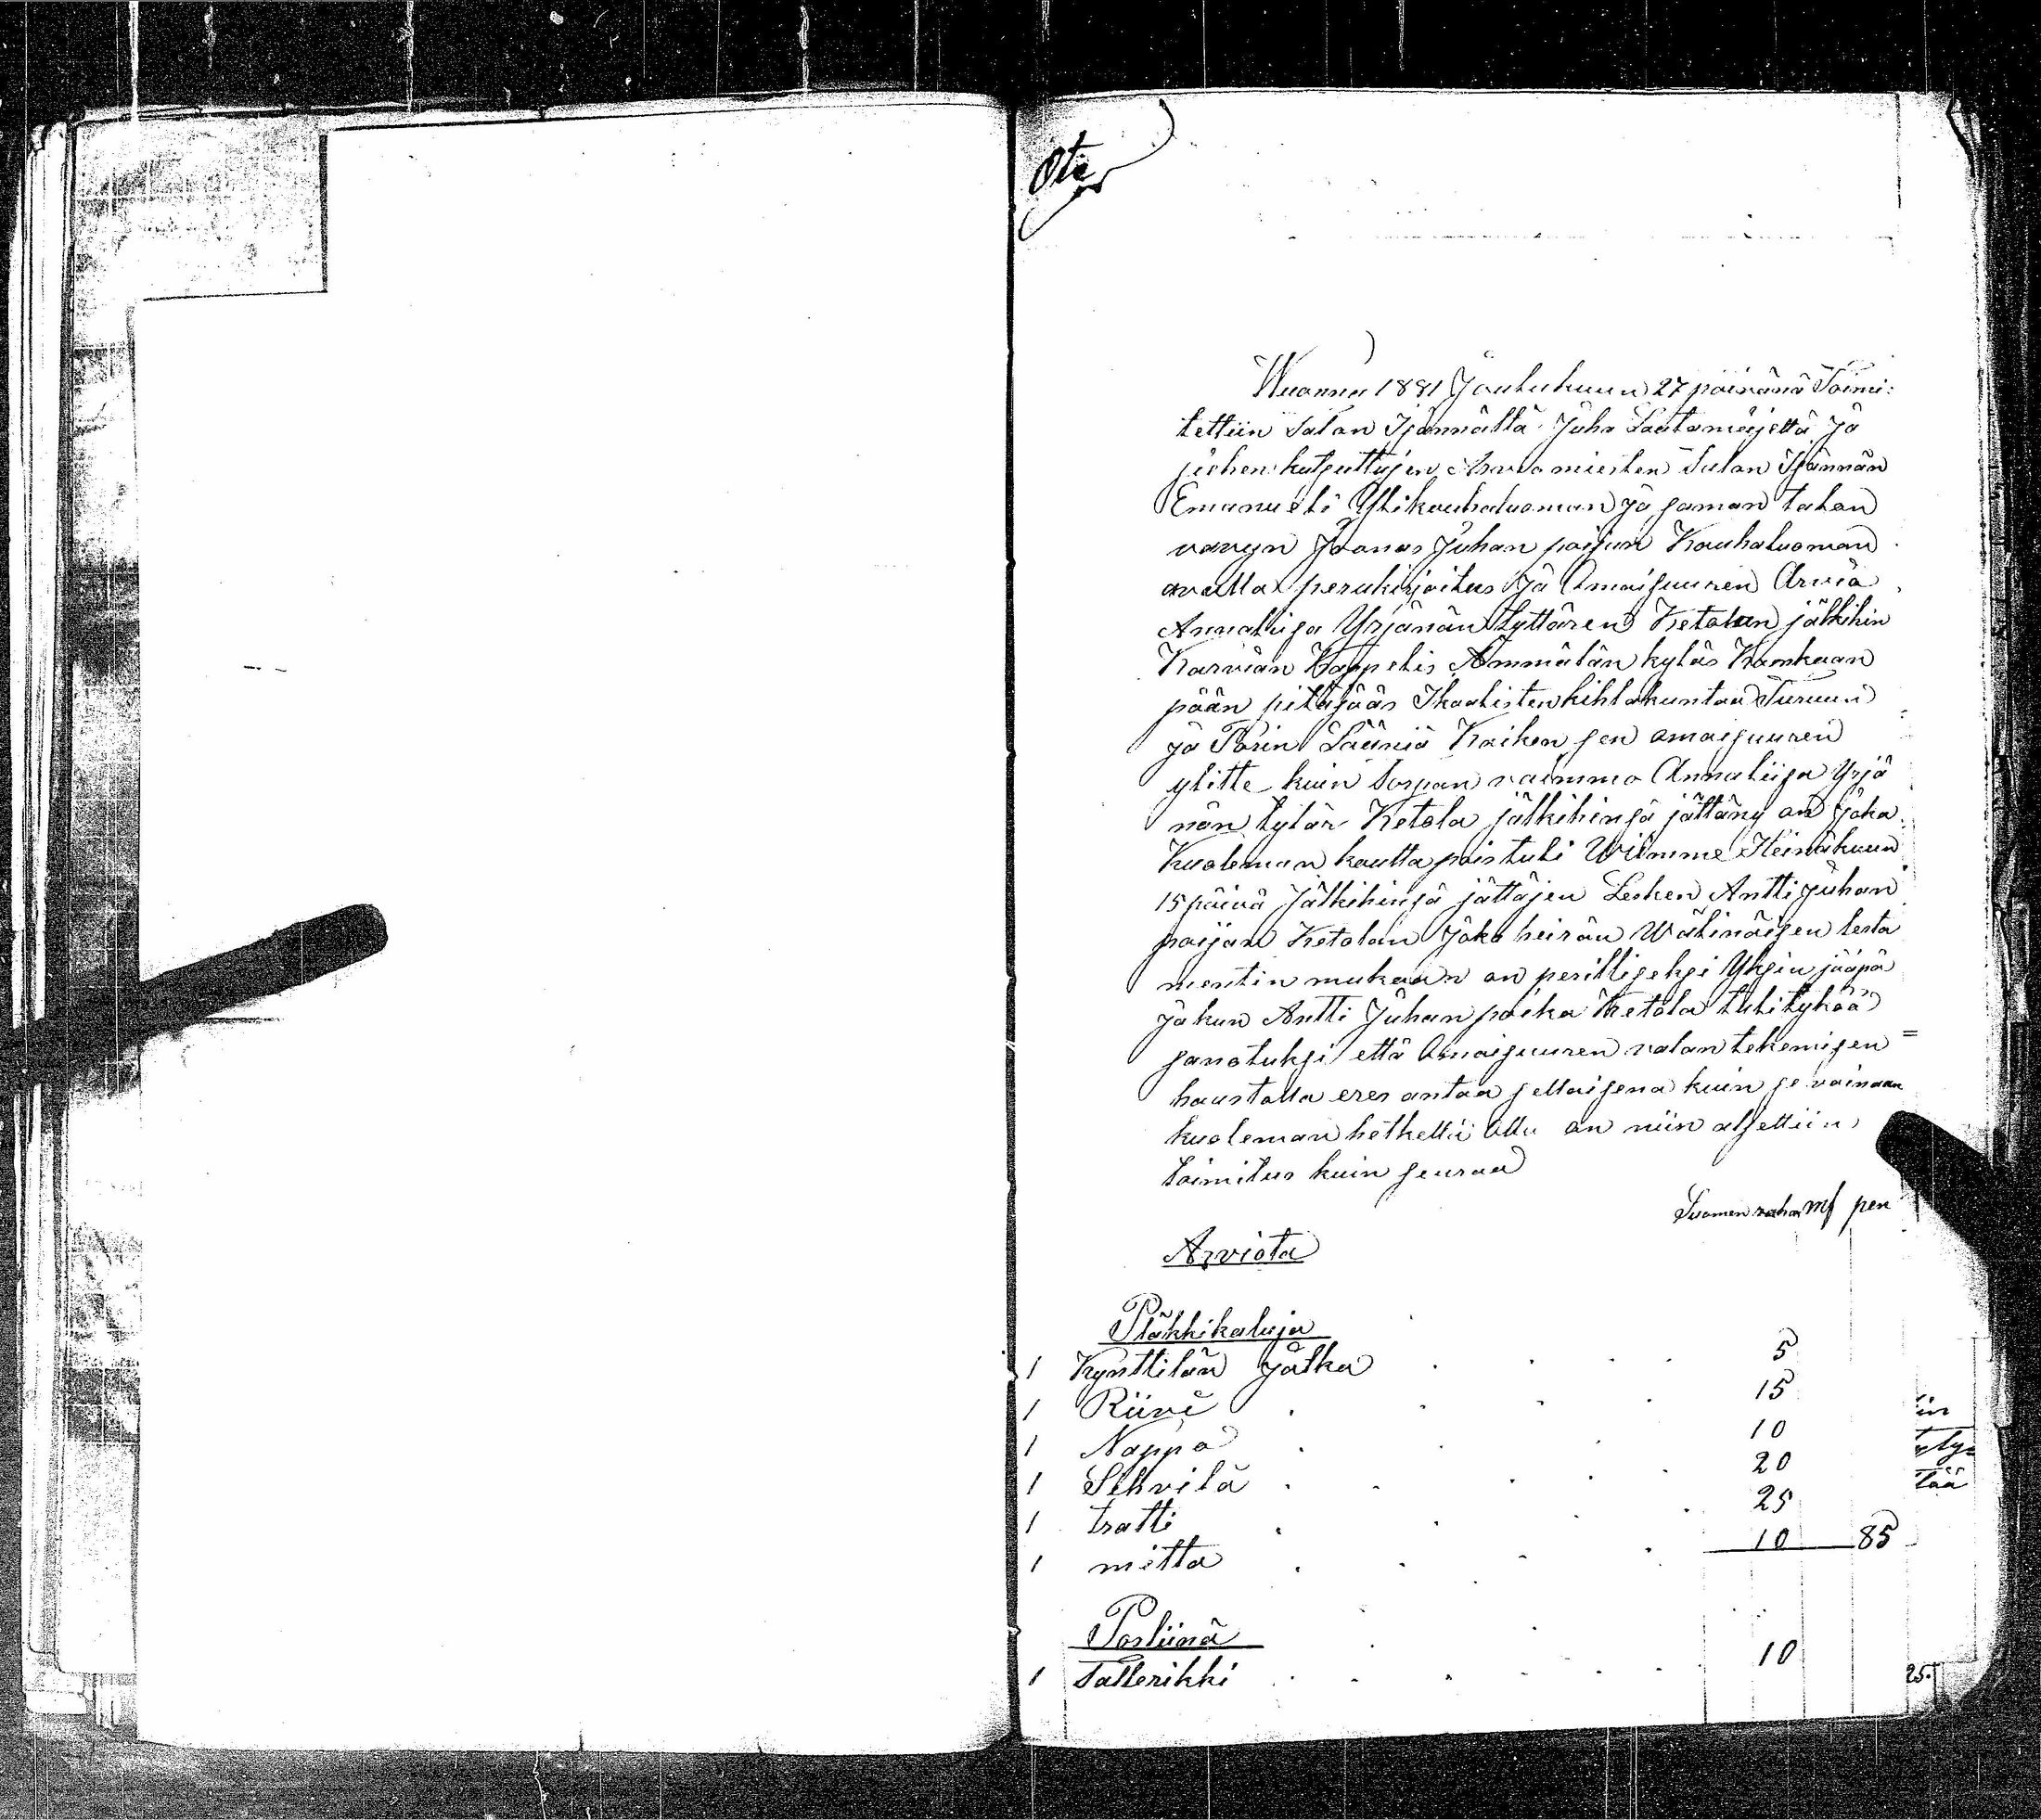 Ote
Wuonna 1881 Joulukuun 27 päivänä Toimi:
tettiin Talon Isännältä Juho Saatamäjeltä ja
siehen kutsuttujen Arvomiesten Talon Isännän
Emanueli Ylikauhaluoman ja saman talon
vävyn Joonas Juhan poijan Kauhaluoman
avulla perukirjoitus ja Omaisuuren Arvio
Annaliisa Yrjänän tyttären Ketolan jälkihin
Karvian Kappelis Ämmälän kyläs Kankaan
pään pitäjääs Ikaalisten kihlakuntaa Turuun
ja Porin Lääniä Kaiken sen omaisuuren
ylitte kuin Torpan vaimmo Annaliisa Yrjä
nän tytär Ketola jälkihinsä jättäny on joka
Kuoleman kautta poistuli Wiimme Heinäkuun
15 päivä Jälkihinsä jättäjen Lesken Antti Juhan
poijan Ketolan Joka heirän Wälinäisen testa
mentin mukaan on perilliseksi Yksin jääpä
ja kun Antti Juhan poika Ketola tuli tykää
sanotuksi että Omaisuuren valan tekemisen =
haastolla eres antaa sellaisena kuin se vainaan
kuoleman hetkellä ollu on niin alsettiin
toimitus kuin seuraa
Suomen rahas mk pen
Arviota
Pläkkikaluja
1 Kynttilän Jalka . . . . 5
1 Riivi . . . . 15
1 Nappo . . . 10
1 Sihvilä . . . . 20
1 tratti . . . 25
1 mitta . . . 10 85
Posliinä
1 Tallerikki . . . . 10
25.